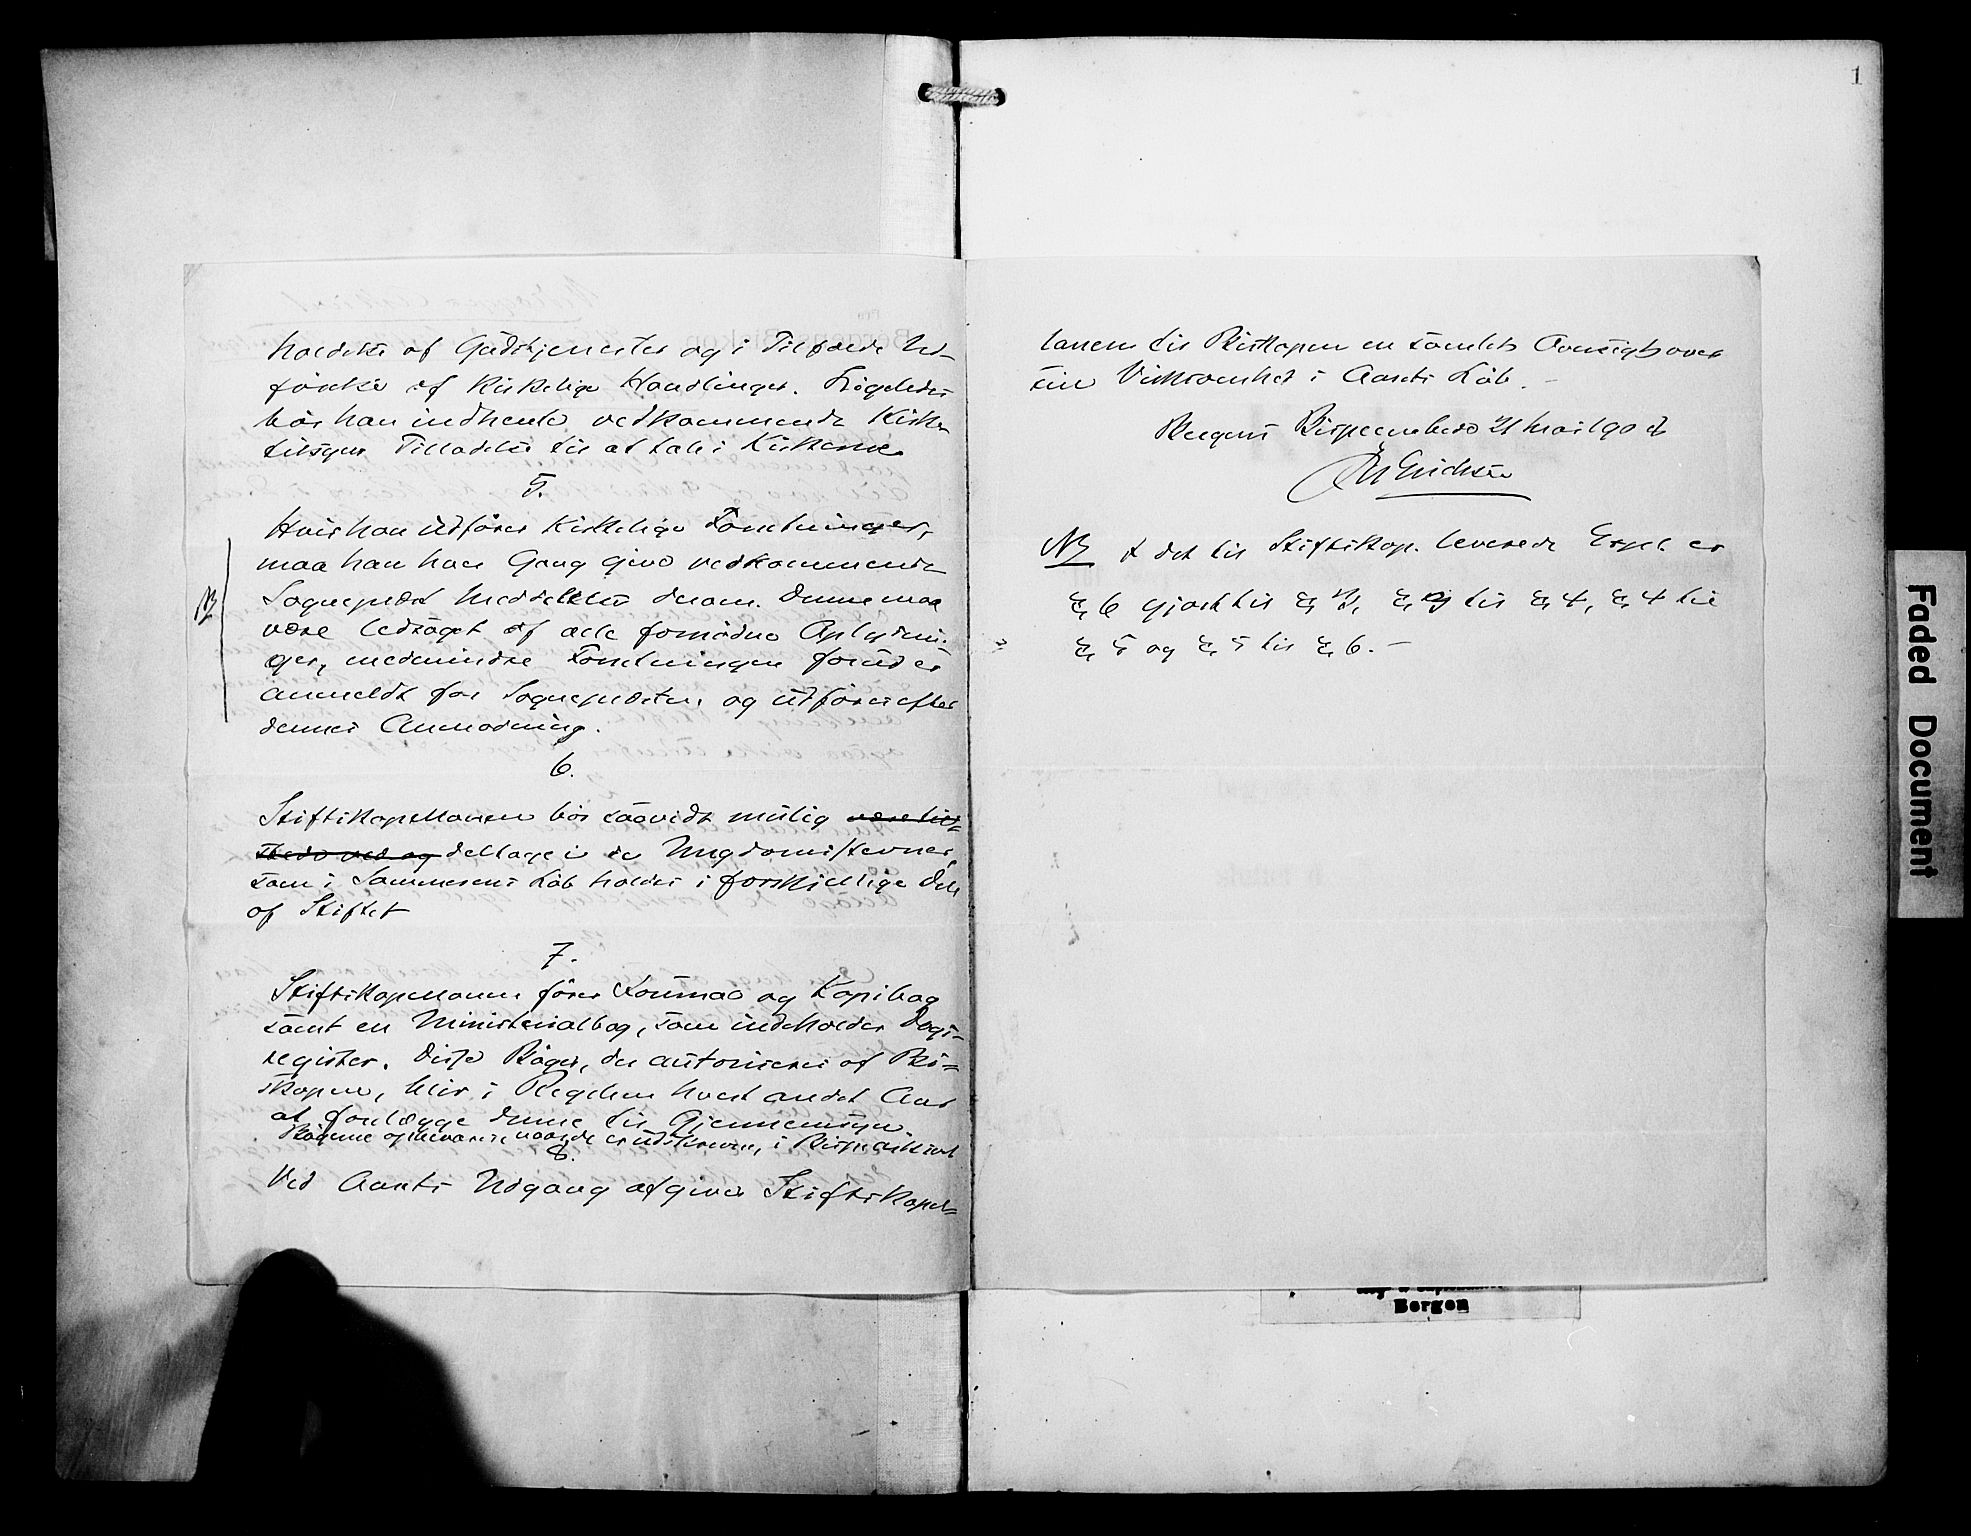 holdelse af Gudstjenester og i Tilfælde Ud-
førelse af kirkelige Handlinger. Ligeledes
bør han indhente vedkommende Kirke-
tilsyns Tilladelse til at tale i Kirkerne
5.
Hvis han udfører kirkelige Forretninger,
maa han hver Gang give vedkommende
Sogneprest Meddelelse derom. Denne maa
være ledsaget af alle fornødne Oplysnin-
ger, medmindre Forretningen forud er
anmeldt for Sognepresten og udføres efter
dennes Anmodning.
NB
6.
Stiftskapellanen bør saavidt mulig være til-
stede ved og deltage i de Ungdomsstevner,
som i Sommerens Løb holdes i forskjellige Dele
af Stiftet
7.
Stiftskapellanen fører Journal og Kopibog
samt en Ministerialbog, som indeholder Dags-
register. Disse Bøger, der autoriseres af Bi-
skopen, blir i Regelen hvert andet Aar
at forelægge denne til Gjennemsyn.
Bøgerne opbevares, naar de er udskrevne, i Bispearkivet
8.
Ved Aarets Udgang afgiver Stiftskapel-
1
lanen til Biskopen en samlet Oversigt over
sin Virksomhed i Aarets Løb. –
Bergens Bispeembede 21 Mai 190
Erichsen
NB I det til Stiftskap. leverede Expl. er
§ 6 gjort til § 3, § 3 til § 4, § 4 til
§ 5 og § 5 til § 6. –
Bergen
Faded Document